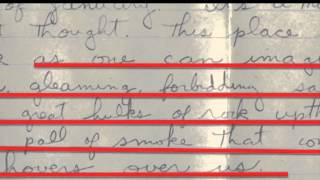 of January. It's a m
t thought. This place
as one can imagi
, gleaming, forbidding sa
great hulks of rock upth
pall of smoke that co
hovers over us.